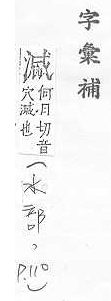 字彙補
何月切音
穴滅也
(水部,P.110)